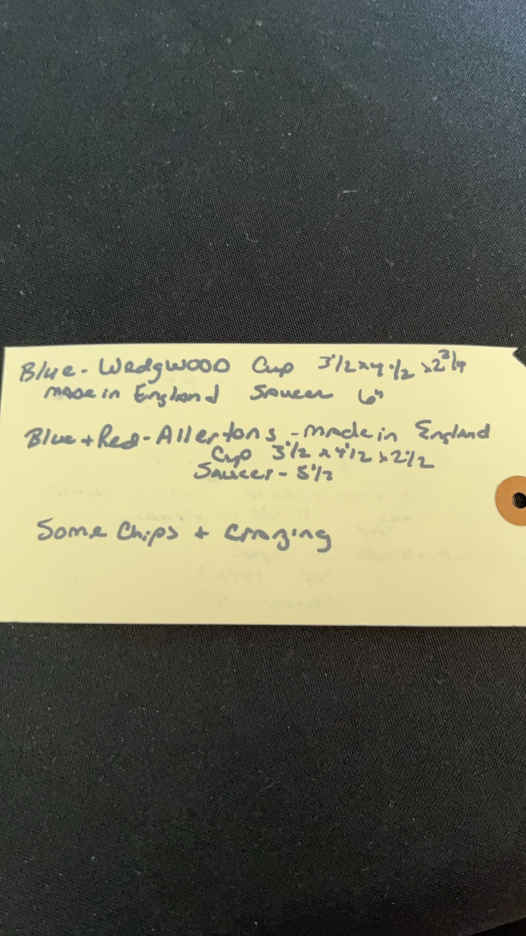 Blue - Wedgwood Cup 3 1/2 x 4 1/2 x 2 3/4
made in England Saucer 6"
Blue + Red - Allertons - made in England
Cup 3 1/2 x 4 1/2 x 2 1/2
Saucer - 5 1/2
Some Chips + Crazing